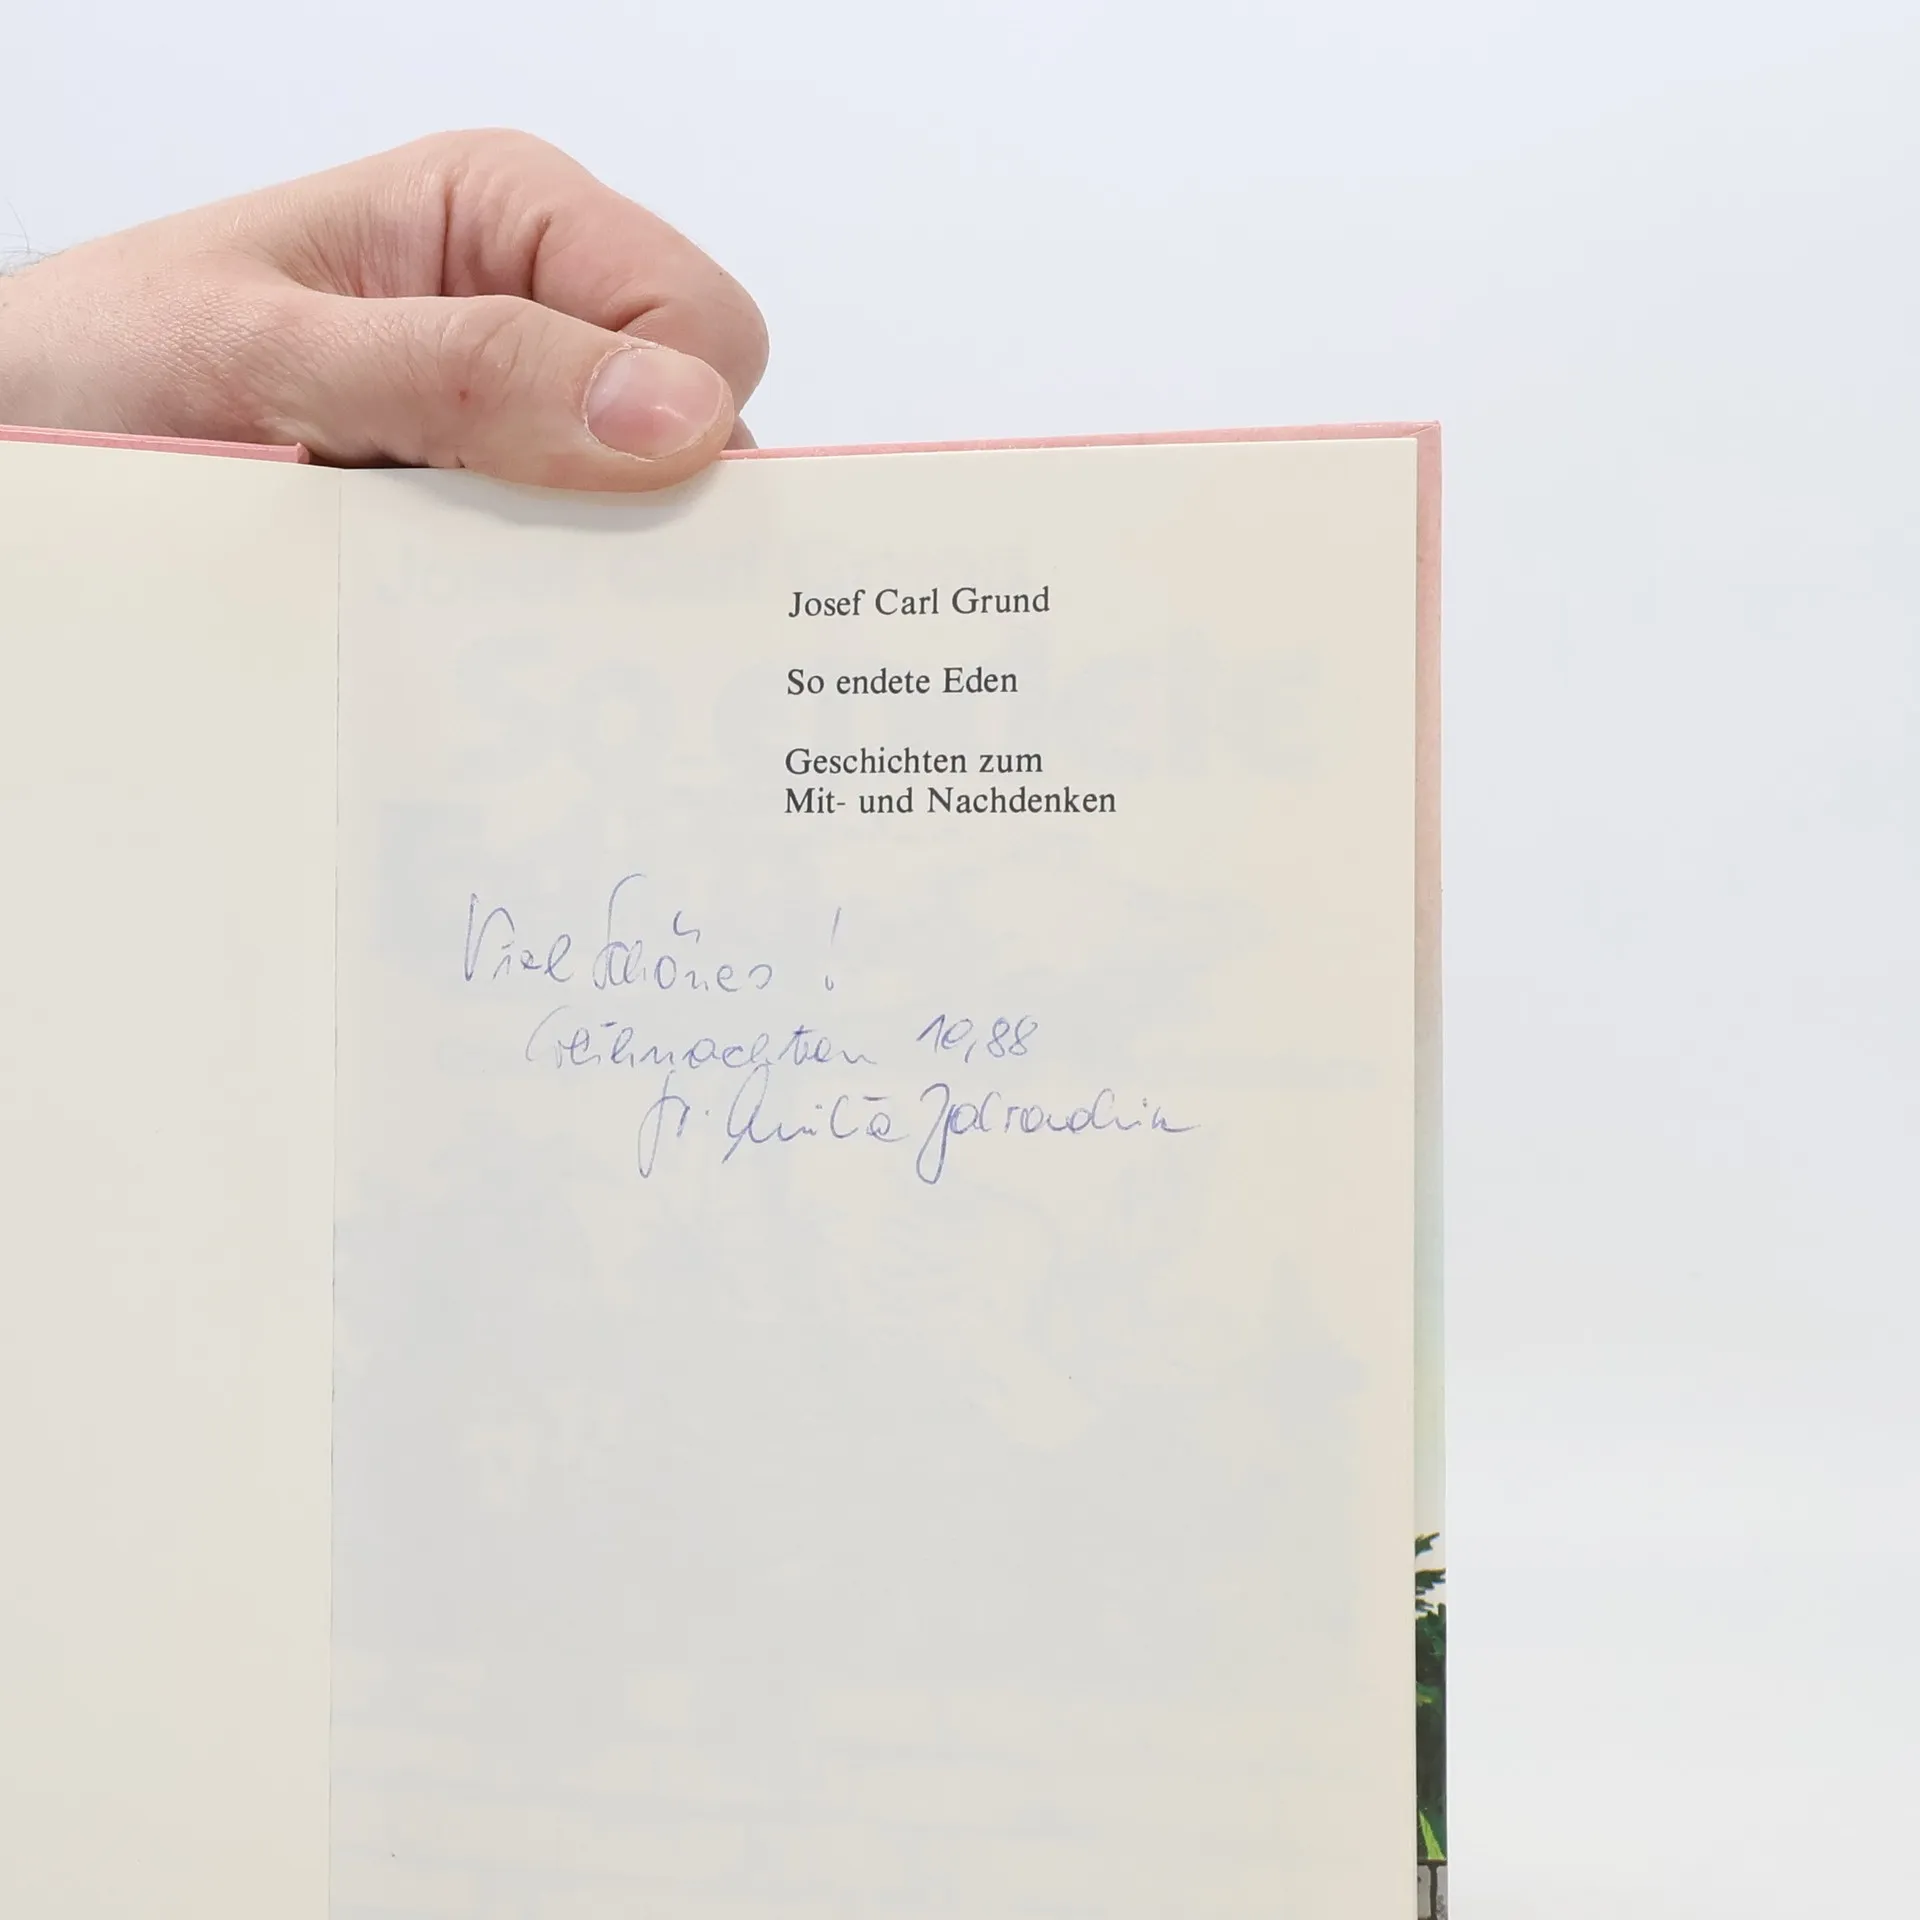 Josef Carl Grund
So endete Eden
Geschichten zum
Mit- und Nachdenken
Viel Schönes !
Weihnachten